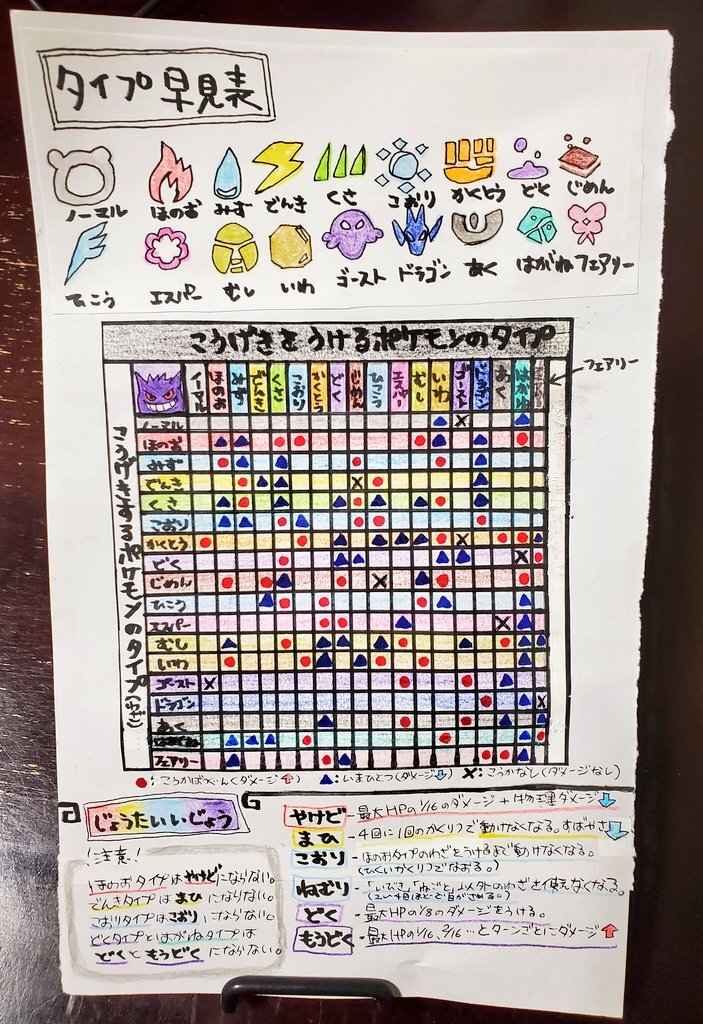 タイプ早見表
ノーマル ほのお みず でんき くさ こおり かくとう どく じめん
ひこう エスパー むし いわ ゴースト ドラゴン あく はがね フェアリー
こうげきをうけるポケモンのタイプ
ノーマル ほのお みず でんき くさ こおり かくとう どく じめん ひこう エスパー むし いわ ゴースト ドラゴン あく はがね フェアリー
フェアリー
こうげきするポケモンのタイプ(わざ)
ノーマル
ほのお
みず
でんき
くさ
こおり
かくとう
どく
じめん
ひこう
エスパー
むし
いわ
ゴースト
ドラゴン
あく
はがね
フェアリー
●:こうかばつぐん(ダメージ⇧) ▲:いまひとつ(ダメージ⇩) ×:こうかなし(ダメージなし)
じょうたいいじょう
注意!
ほのおタイプはやけどにならない。
でんきタイプはまひにならない。
こおりタイプはこおりにならない。
どくタイプとはがねタイプは
どくともうどくにならない。
やけど-最大HPの1/16のダメージ+物理ダメージ⇩
まひ-4回に1回のかくりつで動けなくなる。すばやさ⇩
こおり-ほのおタイプのわざをうけるまで動けなくなる。
(ひくいかくりつでなおる。)
ねむり-「いびき」「ねごと」以外のわざを使えなくなる。
どく-最大HPの1/8のダメージをうける。
もうどく-最大HPの1/16、2/16…とターンごとにダメージ⇧